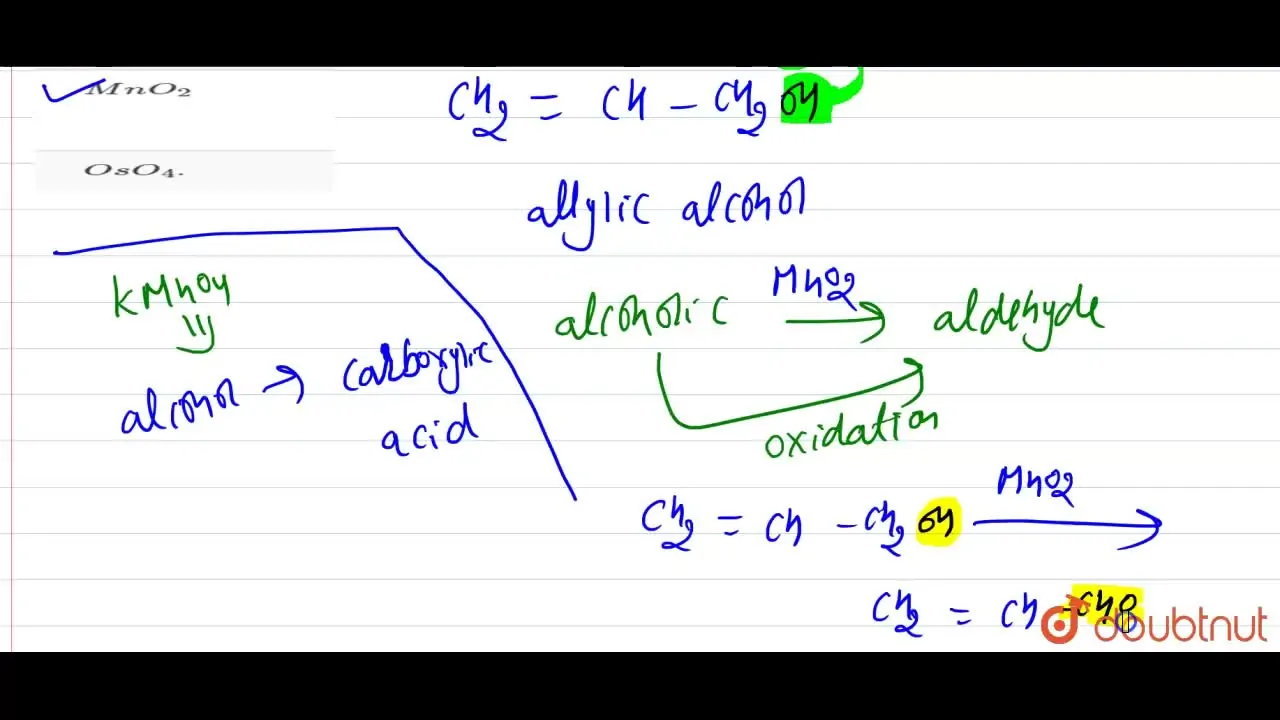 MnO2
CH2 = CH - CH2 OH
OsO4.
allylic alcohol
KMnO4
alcohol → carboxylic
acid
alcoholic MnO2 → aldehyde
oxidation
CH2 = CH - CH2 OH MnO2 →
CH2 = CH - CHO
doubtnut